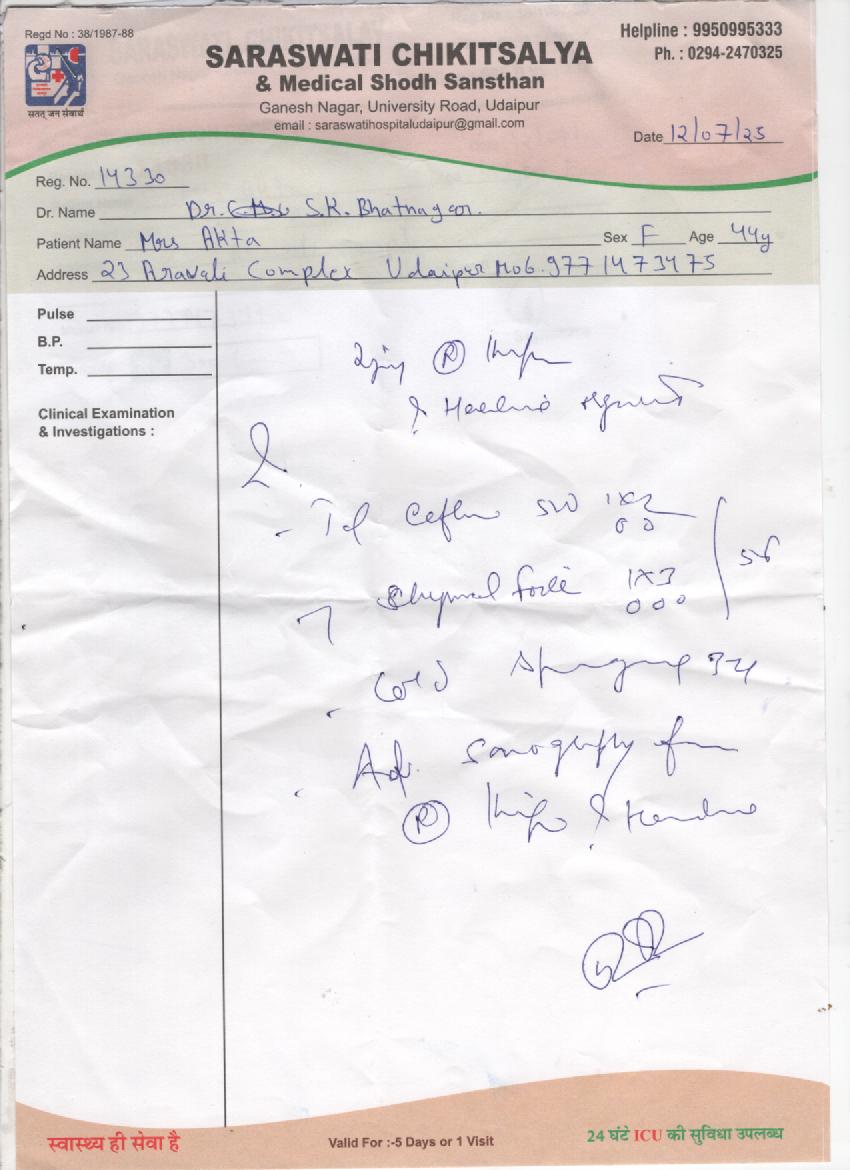 Regd No : 38/1987-88
सतत् जन सेवार्थ
SARASWATI CHIKITSALYA
& Medical Shodh Sansthan
Ganesh Nagar, University Road, Udaipur
email : saraswatihospitaludaipur@gmail.com
Helpline : 9950995333
Ph. : 0294-2470325
Date 12/07/25
Reg. No. 14330
Dr. Name Dr. S.K. Bhatnagar.
Patient Name Mrs Akta Sex F Age 44y
Address 23 Aravali Complex Udaipur Mob. 9771473475
Pulse
B.P.
Temp.
Clinical Examination
& Investigations :
(R)
1x2
Chymoral forte 1x3
Cold Sponging
Adv. Sonography
(R)
स्वास्थ्य ही सेवा है
Valid For :-5 Days or 1 Visit
24 घंटे ICU की सुविधा उपलब्ध